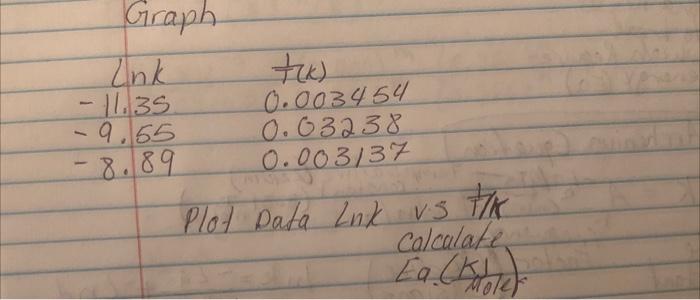 Graph
Lnk 1/T(K)
-11.35 0.003454
-9.55 0.03238
-8.89 0.003137
Plot Data Lnk vs 1/K
Calculate
Ea.(KJ/Mole)